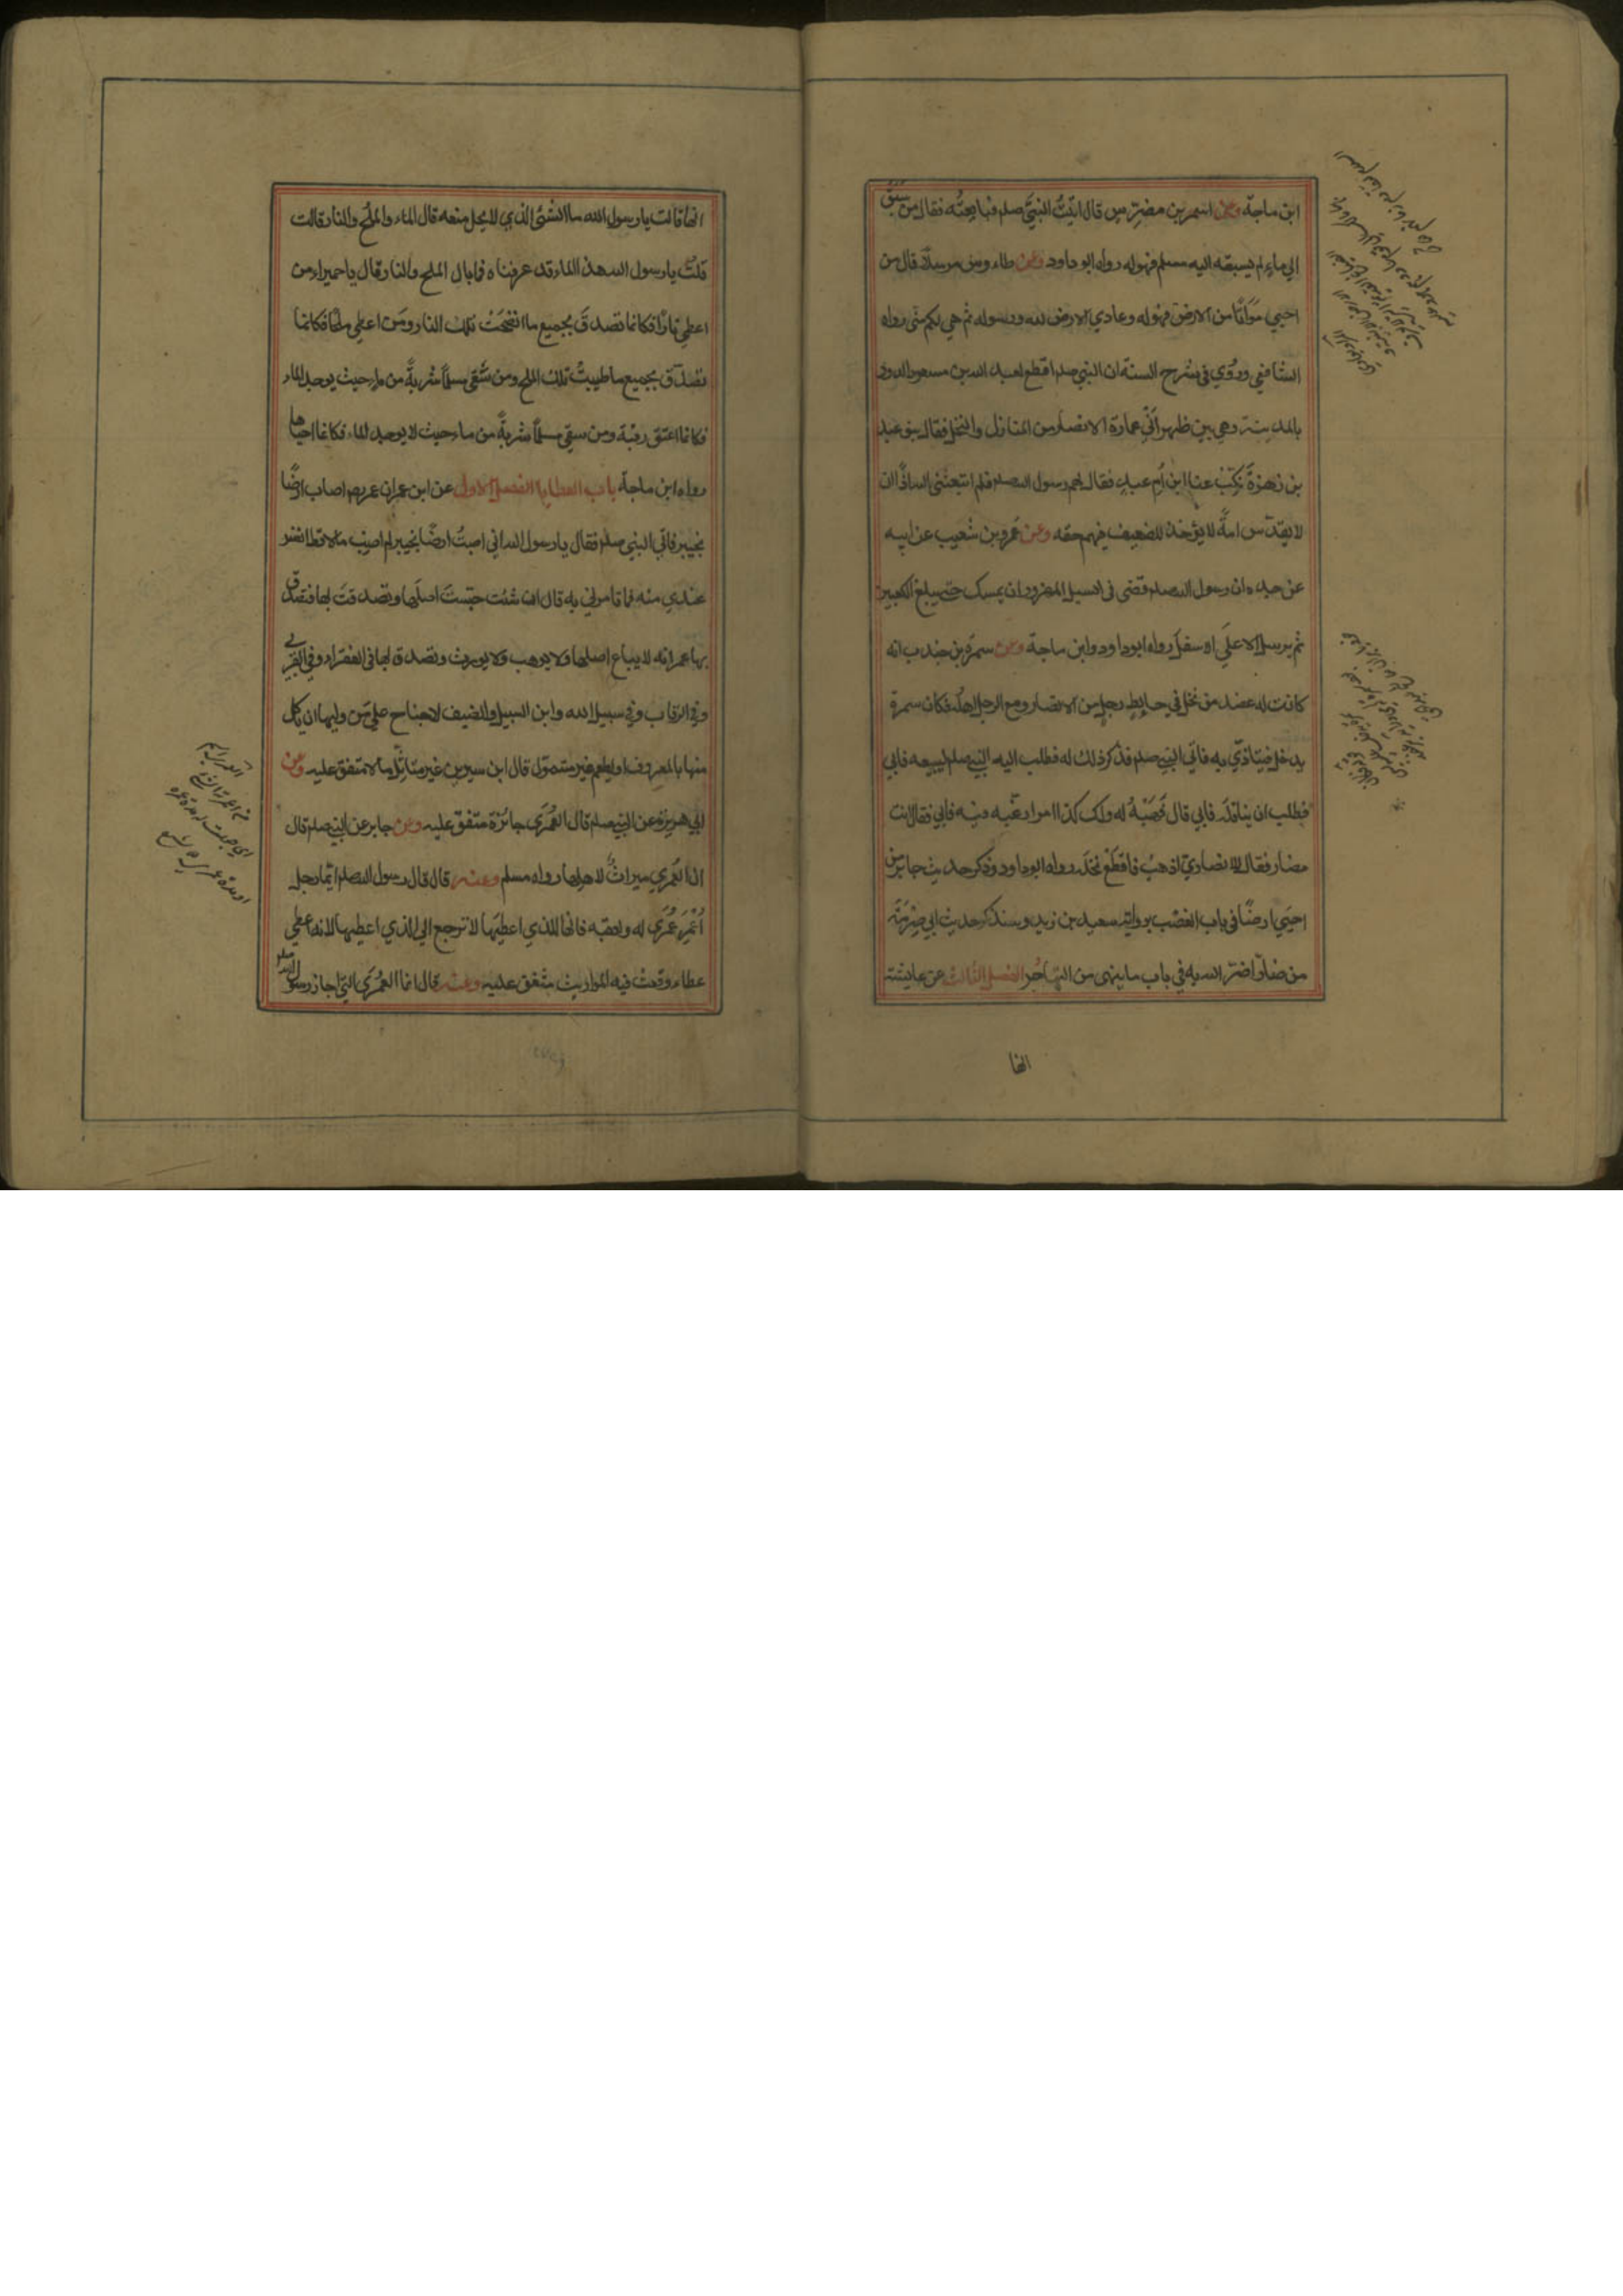 ابن ماجة وعن اسمر بن مضرس قال اتيت النبي صلم فبايعته فقال من سبق
الي ماء لم يسبقه اليه مسلم فهو له رواه ابو داود وعن طاءوس مرسلا قال من
احيي مواتا من الارض فهو له وعادي الارض لله ورسوله ثم هي لكم مني رواه
الشافعي وروي في شرح السنة ان النبي صلم اقطع لعبد الله بن مسعود الدور
بالمدينة وهي بين ظهراني عمارة الانصار من المنازل والنخل فقال بنو عبد
بن زهرة نكب عنا ابن ام عبد فقال لهم رسول الله صلم فلم ابتعثني الله اذا ان
لا يقدس امة لا يؤخذ للضعيف فيهم حقه وعن عمرو بن شعيب عن ابيه
عن جده ان رسول الله صلم قضى في السيل المهزور ان يمسك حتى يبلغ الكعبين
ثم يرسل الاعلي الاسفل رواه ابو داود وابن ماجة وعن سمرة بن جندب انه
كانت له عضد من نخل في حايط رجل من الانصار ومع الرجل اهله فكان سمرة
يدخل فيتاذي به فاتي النبي صلم فذكر ذلك له فطلب اليه النبي صلم ليبيعه فابي
فطلب ان يناقله فابي قال فهبه له ولك كذا امرا رغبه فيه فابي فقال انت
مضار فقال للانصاري اذهب فاقطع نخله رواه ابو داود وذكر حديث جابر من
احيي ارضا في باب الغصب برواية سعيد بن زيد وسنذكر حديث ابي صرمة
من ضار اضر الله به في باب ما ينهى من التهاجر الفصل الثالث عن عايشة
انها
انها قالت يا رسول الله ما الشئ الذي لا يحل منعه قال الماء والملح والنار قالت
قلت يا رسول الله هذا الماء قد عرفناه فما بال الملح والنار قال يا حميراء من
اعطي نارا فكانما تصدق بجميع ما انضجت تلك النار ومن اعطي ملحا فكانما
تصدق بجميع ما طيبت تلك الملح ومن سقي مسلما شربة من ماء حيث يوجد الماء
فكانما اعتق رقبة ومن سقي مسلما شربة من ماء حيث لا يوجد الماء فكانما احياها
رواه ابن ماجة باب العطايا الفصل الاول عن ابن عمر ان عمر اصاب ارضا
بخيبر فاتي النبي صلم فقال يا رسول الله اني اصبت ارضا بخيبر لم اصب مالا قط انفس
عندي منه فما تامرني به قال ان شئت حبست اصلها وتصدقت بها فتصدق
بها عمر انه لا يباع اصلها ولا يوهب ولا يورث وتصدق بها في الفقراء وفي القربي
وفي الرقاب وفي سبيل الله وابن السبيل والضيف لا جناح علي من وليها ان ياكل
منها بالمعروف او يطعم غير متمول قال ابن سيرين غير متاثل مالا متفق عليه وعن
ابي هريرة عن النبي صلم قال العمرى جائزة متفق عليه وعن جابر عن النبي صلم قال
ان العمري ميراث لاهلها رواه مسلم وعنه قال قال رسول الله صلم ايما رجل
اعمر عمرى له ولعقبه فانها للذي اعطيها لا ترجع الي الذي اعطيها لانه اعطي
عطاء وقعت فيه المواريث متفق عليه وعنه قال انما العمرى التي اجاز رسول الله صلم